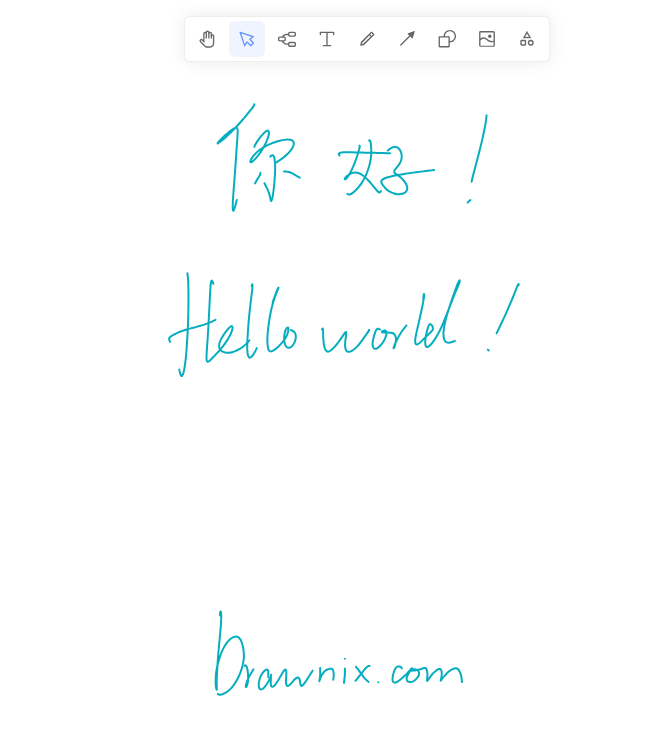 你好!
Hello world!
Drawnix.com